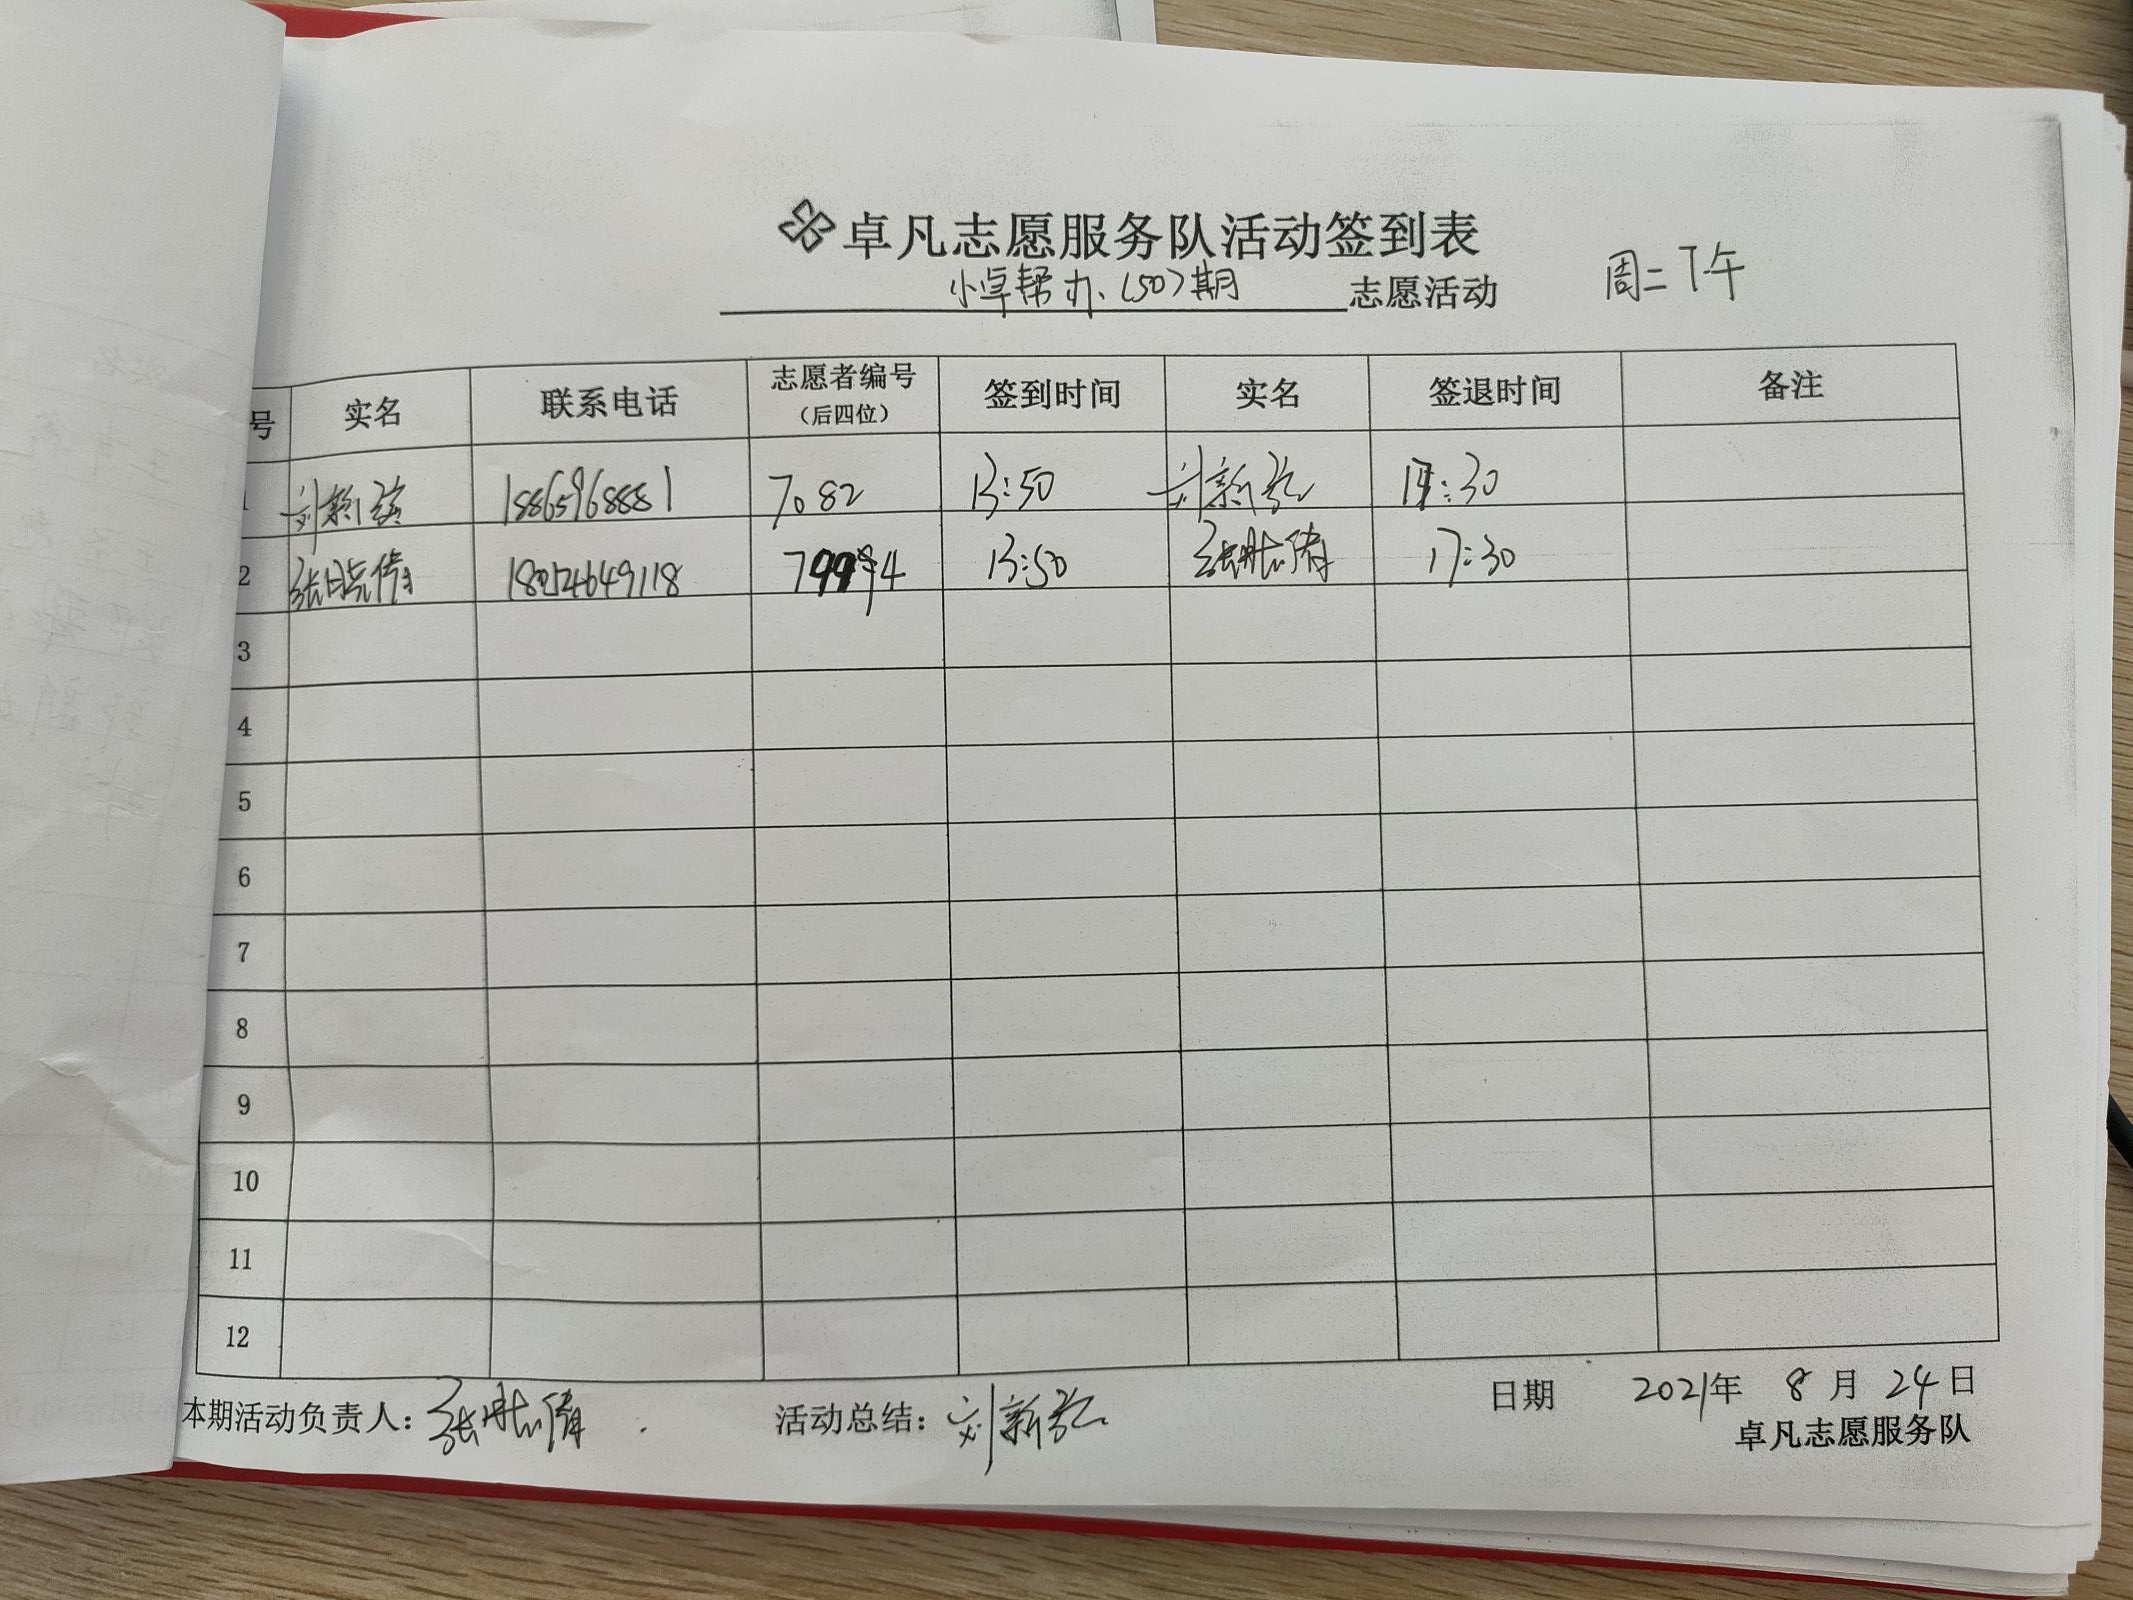 卓凡志愿服务队活动签到表
小卓帮办、(507期 志愿活动 周二下午
号 实名 联系电话 志愿者编号（后四位） 签到时间 实名 签退时间 备注
1 刘新 18865968881 7082 13:50 刘新 17:30
2 张晓倩 18 13:50 张 倩 17:30
3
4
5
6
7
8
9
10
11
12
本期活动负责人：张 倩 活动总结：刘新 日期 2021年 8月 24日
卓凡志愿服务队